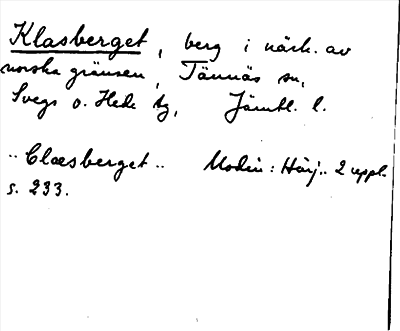 Klasberget, berg i närh. av
norska gränsen, Tännäs sn,
Svegs o. Hede tg, Jämtl. l.
.. Clæsberget .. Modin: Härj.. 2 uppl.
s. 233.